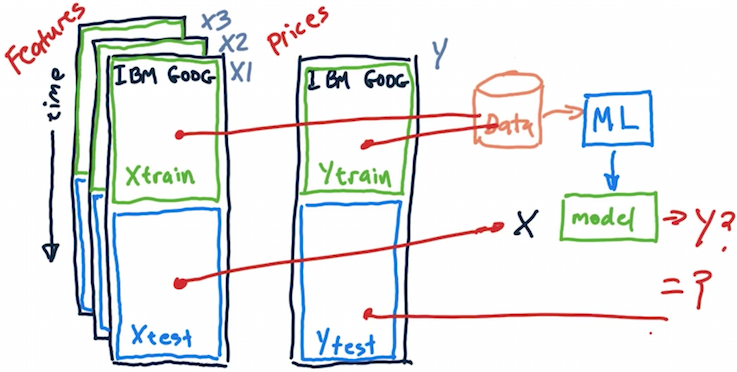 Features
X3
X2
X1
time
IBM GOOG
Xtrain
Xtest
Prices
Y
IBM GOOG
Ytrain
Ytest
Data
ML
model
X
Y?
= ?